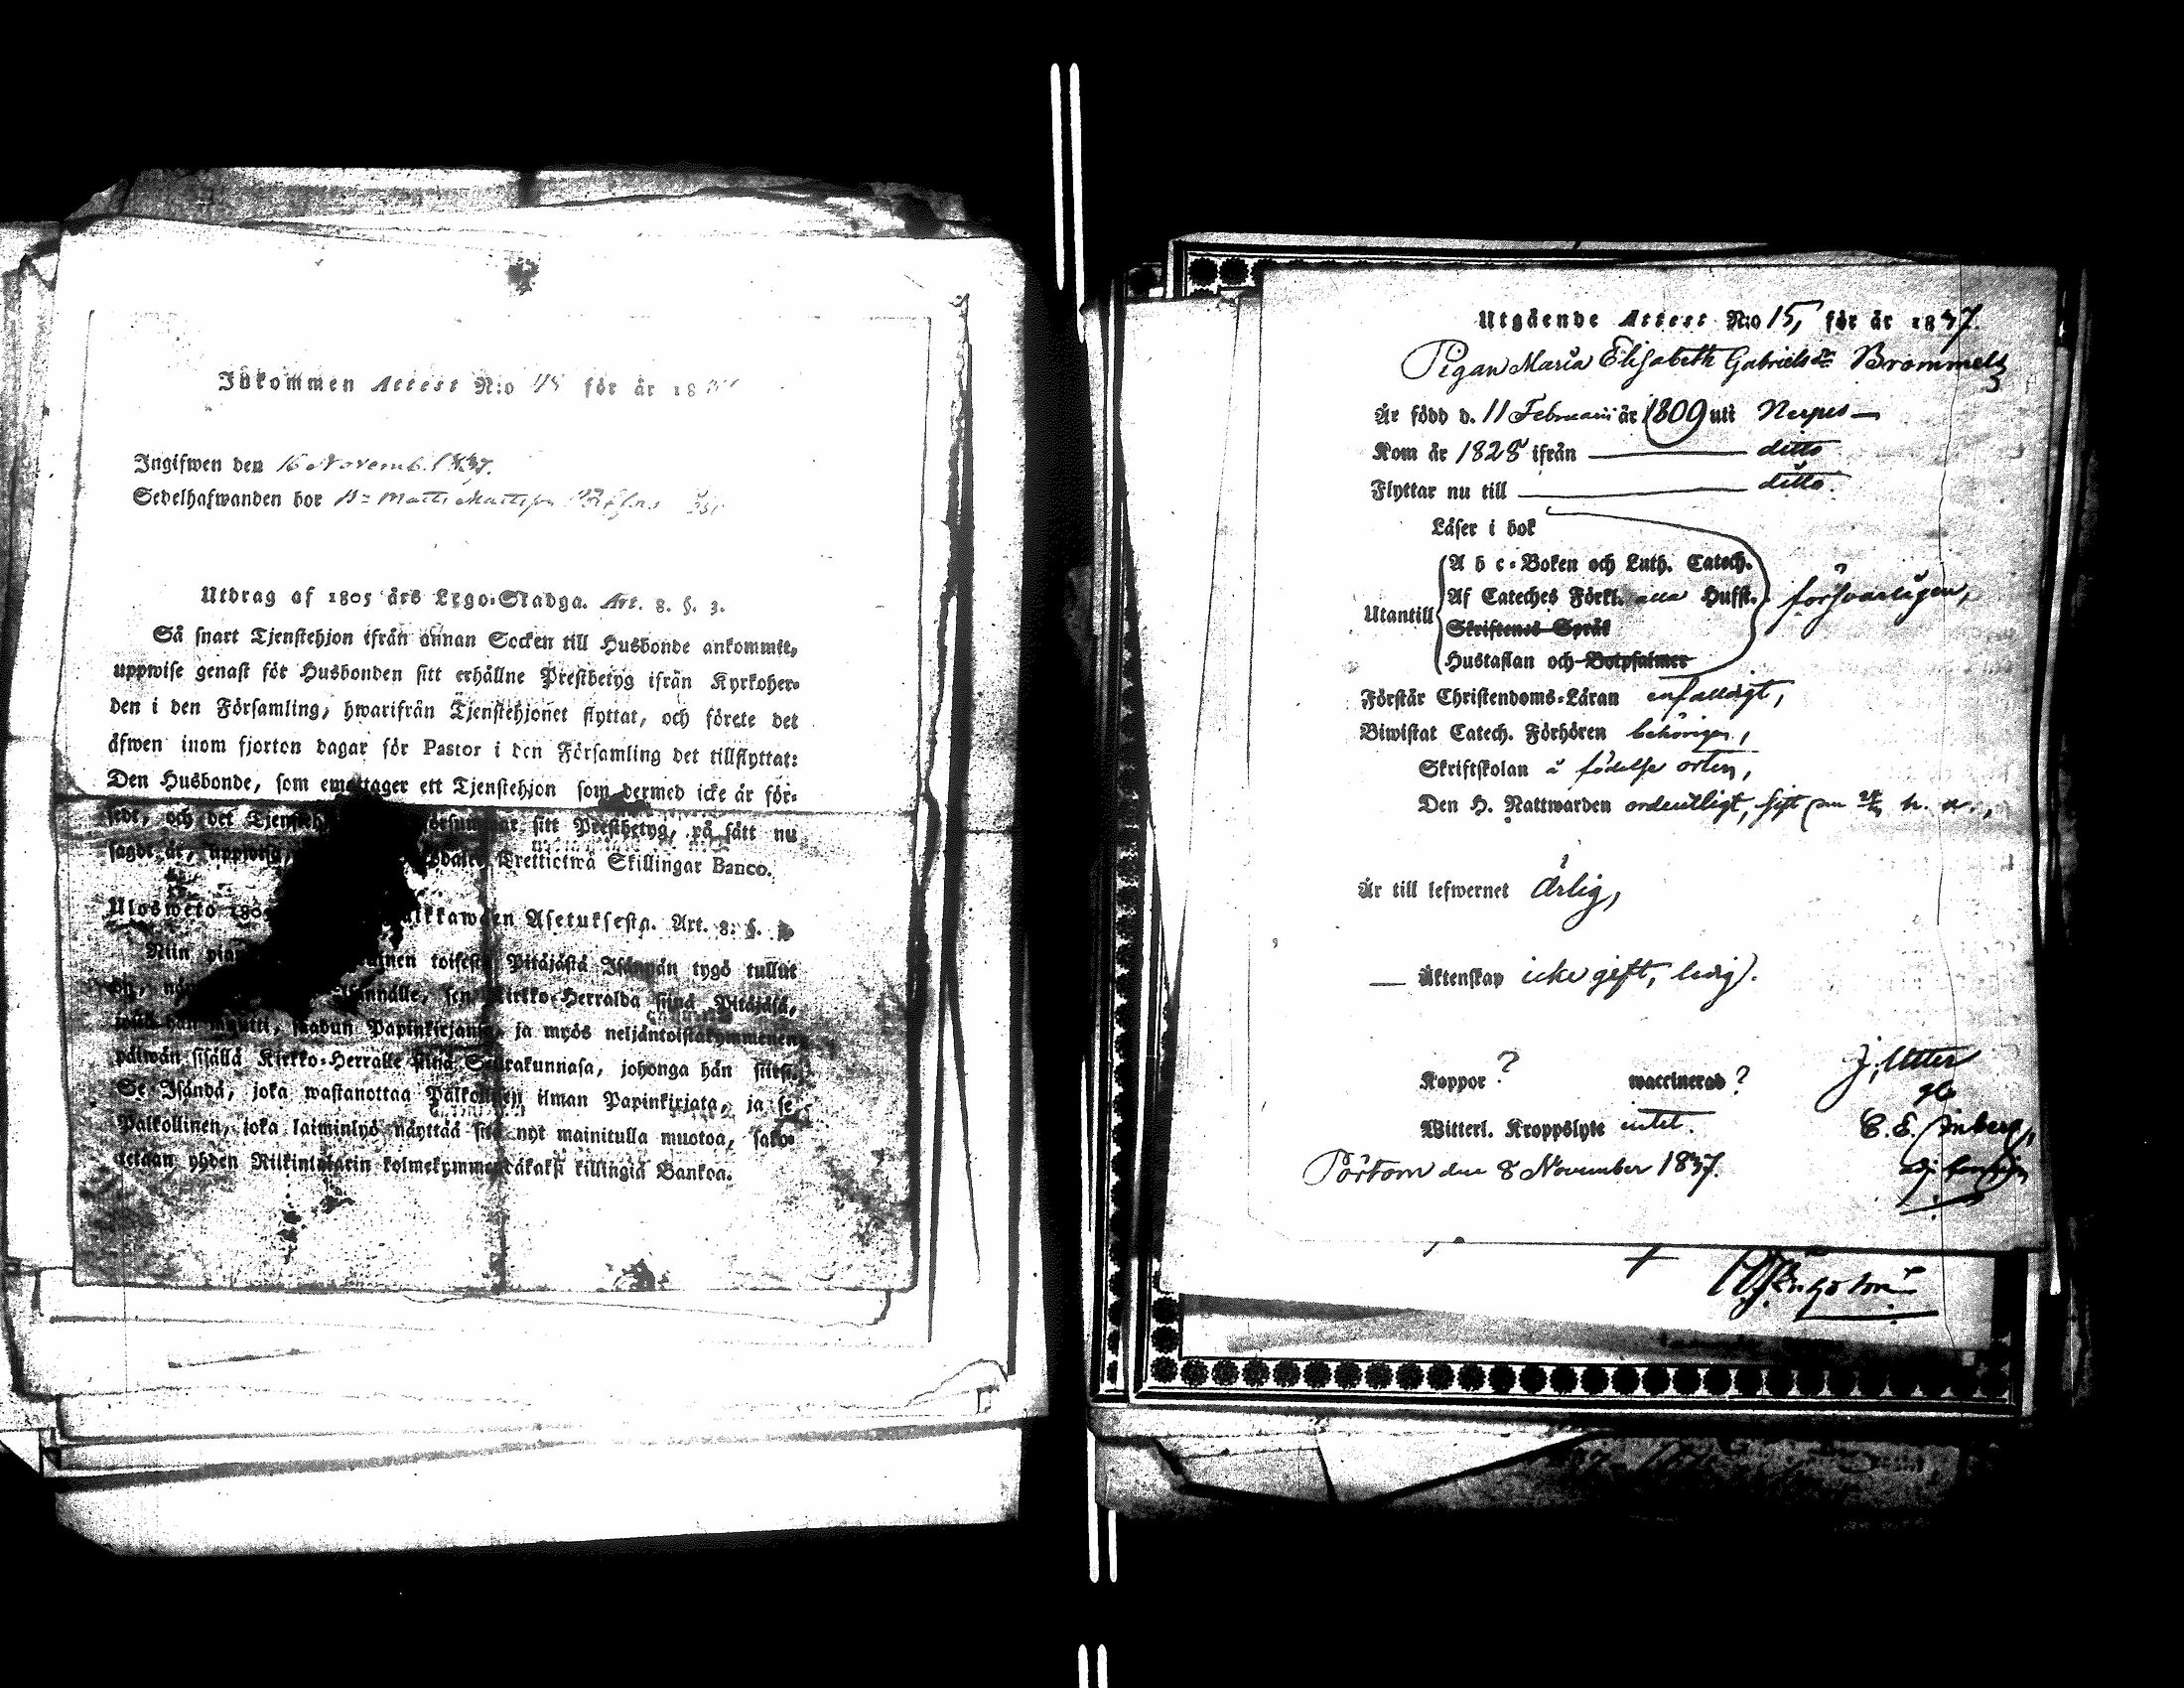 Inkommen Attest N:o 45 för år 1837
Ingifwen den 16 Novemb. 1837.
Sedelhafwanden bor Matts Mattsson
Utdrag af 1805 års Lego-Stadga. Art. 8. §. 3.
Så snart Tjenstehjon ifrån annan Socken till Husbonde ankommit,
uppwise genast för Husbonden sitt erhållne Prestbetyg ifrån Kyrkoher-
den i den Församling, hwarifrån Tjenstehjonet flyttat, och förete det
äfwen inom fjorton dagar för Pastor i den Församling det tillflyttat:
Den Husbonde, som emottager ett Tjenstehjon som dermed icke är för-
sedt, och det Tjensteh försummar sitt Prestbetyg, på sätt nu
sagdt är, uppwisa, Trettiotwå Skillingar Banco.
Ulosweto 180 alkkawäen Asetuksesta. Art. 8. §.
Niin pian toisesta Pitäjästä Isännän tygö tullut
on, Isännälle, sen Kirkko-Herralda siinä Pitäjäsä,
muutti, saadun Papinkirjansa, ja myös neljäntoistakymmenen
päiwän sisällä Kirkko-Herralle siinä Seurakunnasa, johonga hän siirsi.
Se Isändä, joka wastanottaa Palkollisen ilman Papinkirjata, ja se
Palkollinen, joka laiminlyö näyttää sitä nyt mainitulla muotoa, sako-
tetaan yhden Riikintalarin kolmekymmentäkaksi killingiä Bankoa.
Utgående Attest N:o 15, för år 1837.
Pigan Maria Elisabeth Gabrielsdr Brommels
Är född d. 11 Februarii år 1809 uti Nerpes —
Kom år 1828 ifrån — ditto
Flyttar nu till — ditto.
Läser i bok
Utantill A b c-Boken och Luth. Catech.
Af Cateches Förkl. alla Hufst. försvarligen,
Skriftenes Språk
Hustaflan och Botpsalmer
Förstår Christendoms-Läran enfaldigt,
Biwistat Catech. Förhören behörigen,
Skriftskolan å födelse orten,
Den H. Nattwarden ordentligt, sist
Är till lefwernet Ärlig,
— Äktenskap icke gift, ledig).
Koppor ? waccinerad ?
J. Utter
Witterl. Kroppslyte intet.
Pörtom den 8 November 1837.